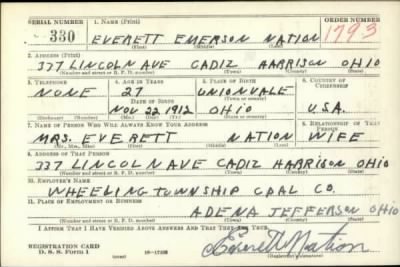 SERIAL NUMBER 1. NAME (Print) ORDER NUMBER
330 EVERETT EMERSON NATION 1793
(First) (Middle) (Last)
2. ADDRESS (Print)
337 LINCOLN AVE CADIZ HARRISON OHIO
(Number and street or R. F. D. number) (Town) (County) (State)
3. TELEPHONE 4. AGE IN YEARS 5. PLACE OF BIRTH 6. COUNTRY OF CITIZENSHIP
NONE 27 UNIONVALE
DATE OF BIRTH (Town or county)
NOV 22 1912 OHIO U.S.A.
(Exchange) (Number) (Mo.) (Day) (Yr.) (State or country)
7. NAME OF PERSON WHO WILL ALWAYS KNOW YOUR ADDRESS 8. RELATIONSHIP OF THAT PERSON
MRS. EVERETT NATION WIFE
(Mr., Mrs., Miss) (First) (Middle) (Last)
9. ADDRESS OF THAT PERSON
337 LINCOLN AVE CADIZ HARRISON OHIO
(Number and street or R. F. D. number) (Town) (County) (State)
10. EMPLOYER'S NAME
WHEELING TOWNSHIP COAL CO.
11. PLACE OF EMPLOYMENT OR BUSINESS
ADENA JEFFERSON OHIO
(Number and street or R. F. D. number) (Town) (County) (State)
I AFFIRM THAT I HAVE VERIFIED ABOVE ANSWERS AND THAT THEY ARE TRUE.
REGISTRATION CARD
D. S. S. Form 1 Everett Nation